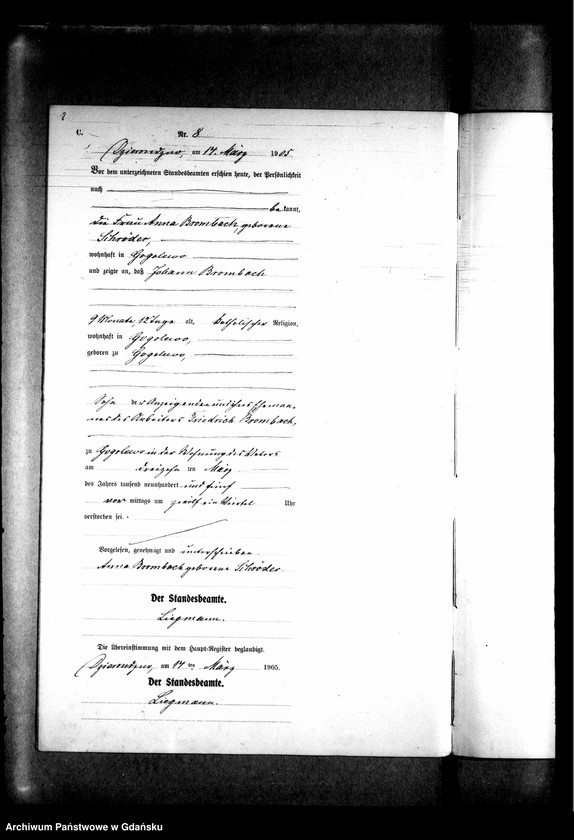 8
C.
Nr. 8
Dzierondzno, am 14. März 1905
Vor dem unterzeichneten Standesbeamten erschien heute, der Persönlichkeit
nach
bekannt,
die Frau Anna Brombach, geborene
Schröder,
wohnhaft in Gogolewo
und zeigte an, daß Johann Brombach
9 Monate, 12 Tage alt, katholischer Religion,
wohnhaft in Gogolewo,
geboren zu Gogolewo,
Sohn der Anzeigenden und ihres Eheman-
nes des Arbeiters Friedrich Brombach,
zu Gogolewo in der Wohnung des Vaters
am dreizehn ten März
des Jahres tausend neunhundert und fünf
vor mittags um zwölf ein Viertel Uhr
verstorben sei.
Vorgelesen, genehmigt und unterschrieben
Anna Brombach geborene Schröder.
Der Standesbeamte.
Liegmann.
Die Übereinstimmung mit dem Haupt-Register beglaubigt.
Dzierondzno, am 14 ten März 1905.
Der Standesbeamte.
Liegmann.
Archiwum Państwowe w Gdańsku